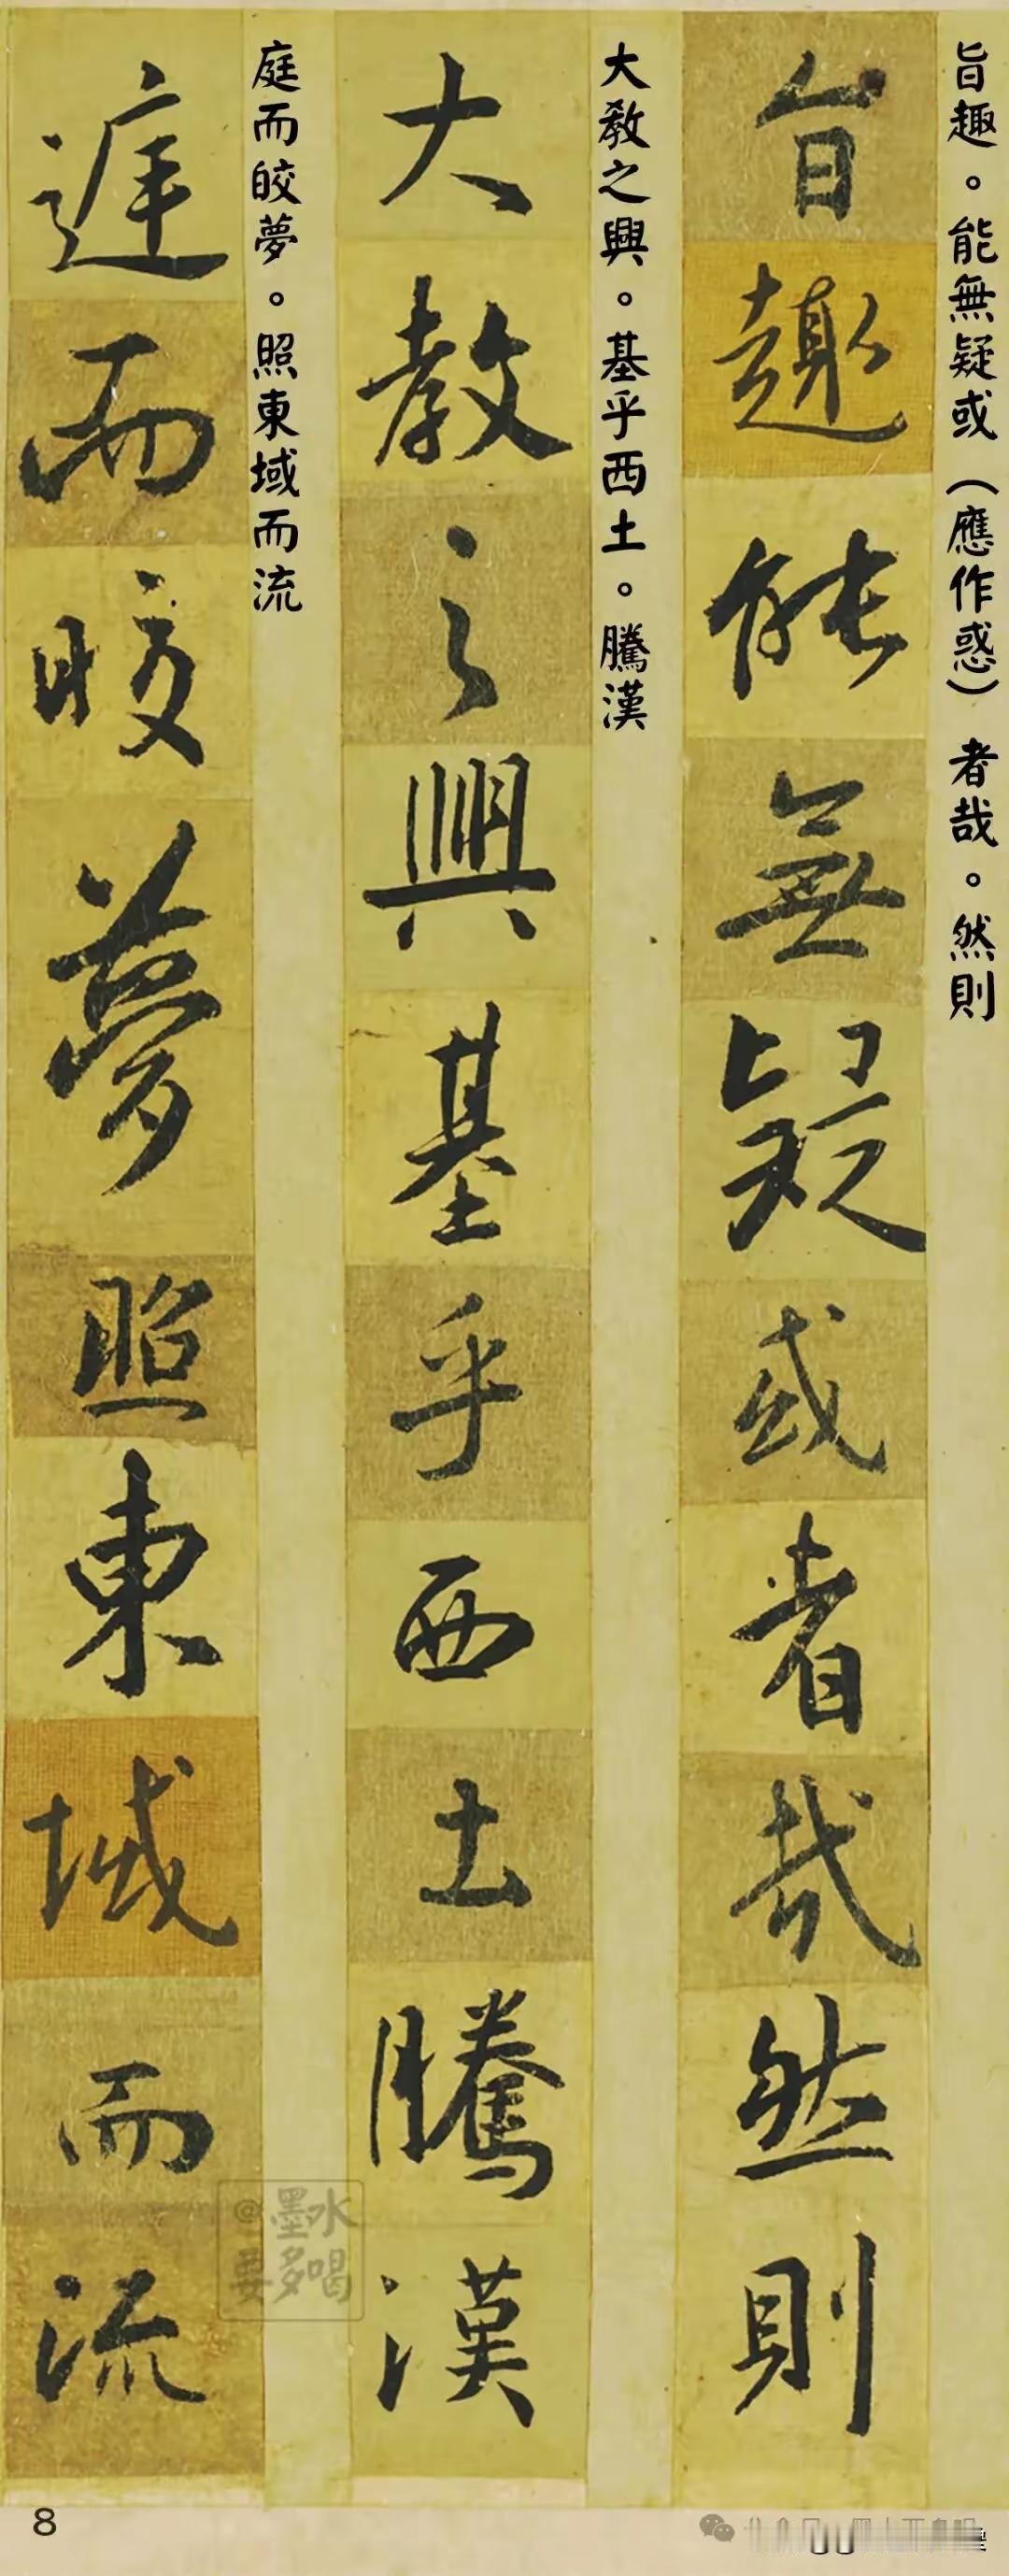 旨趣。能無疑或（應作惑）者哉。然則
旨趣能無疑或者哉然則
大教之興。基乎西土。騰漢
大教之興基乎西土騰漢
庭而皎夢。照東域而流
庭而皎夢照東域而流
@墨水
要多喝
8